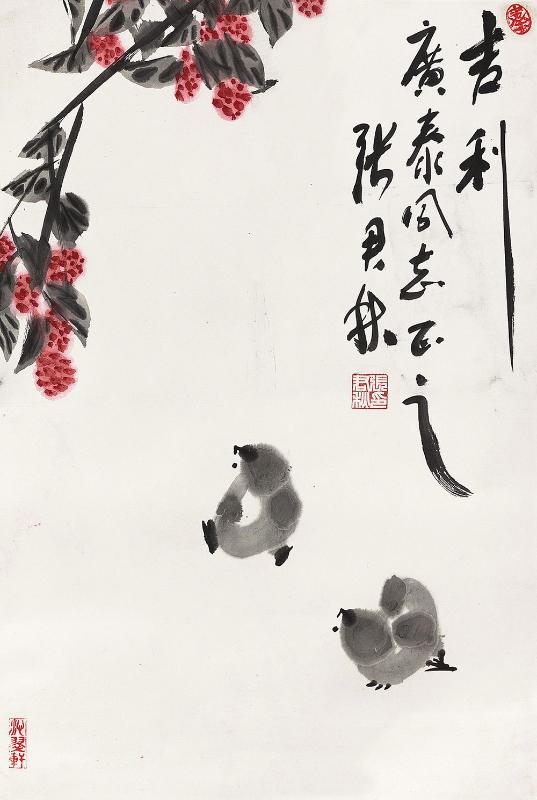 吉利
廣泰同志正之
張君秋
張君秋印